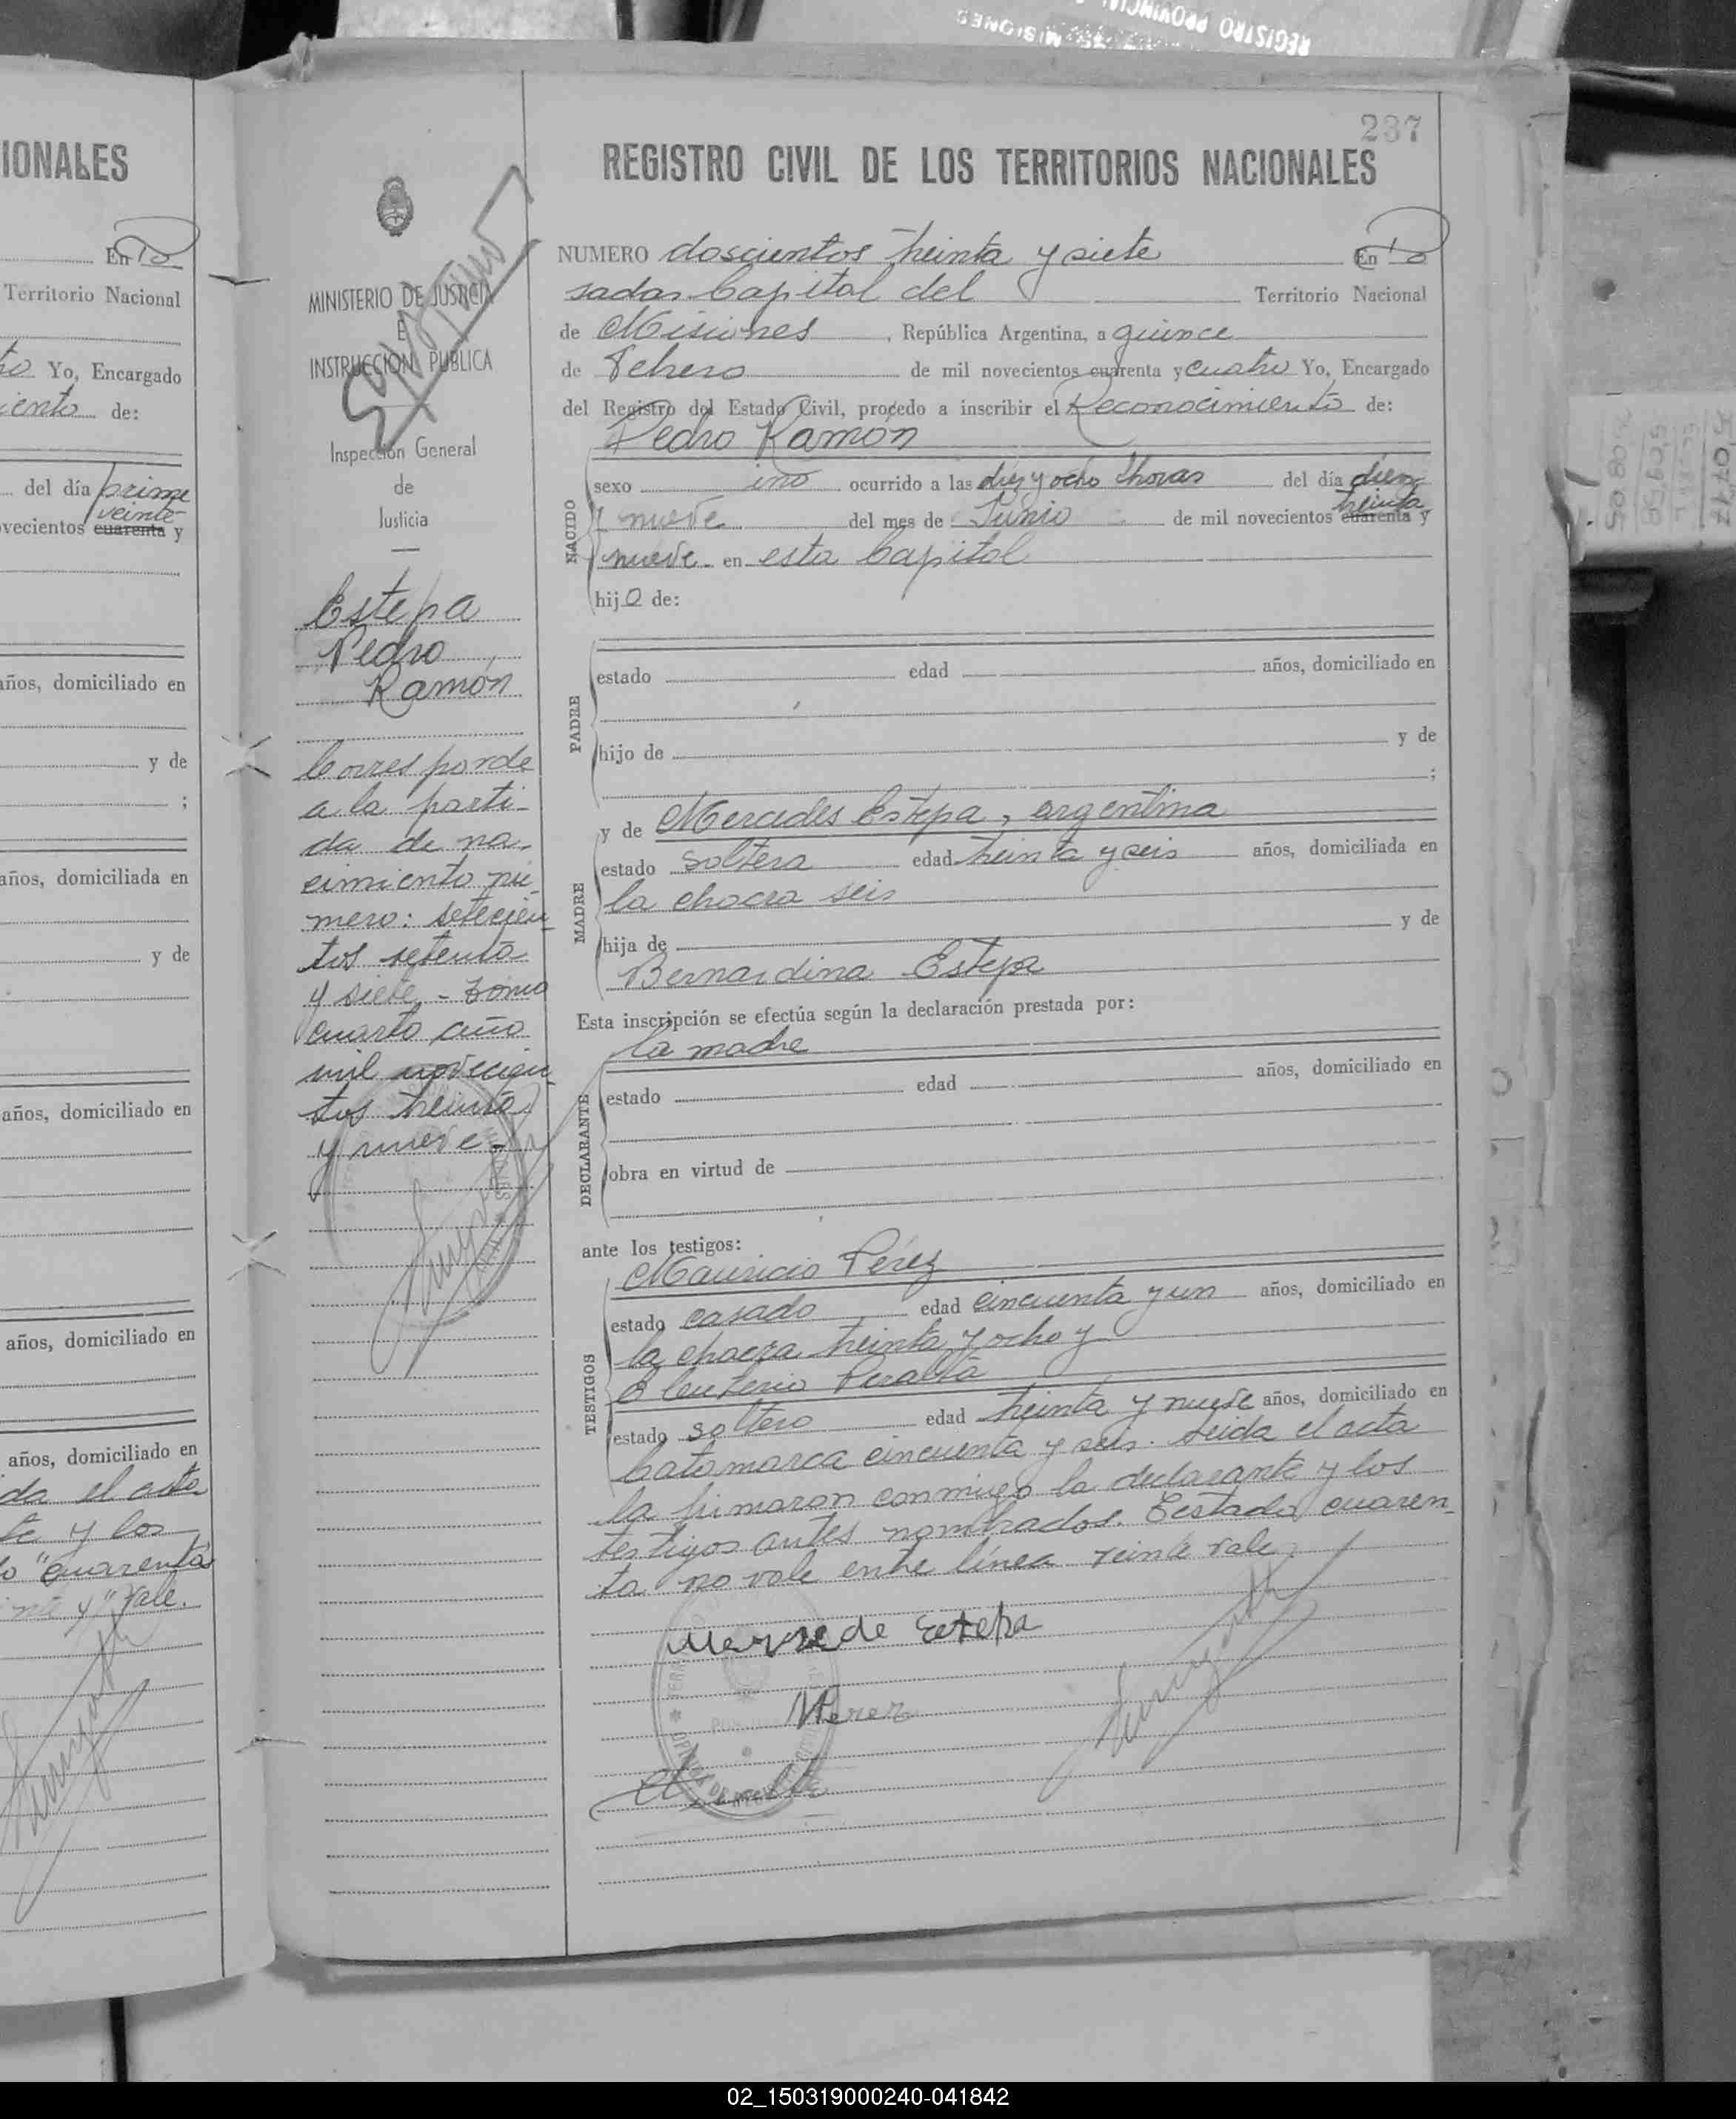 REGISTRO PROVINCIAL
MISIONES
IONALES
En Po
Territorio Nacional
Yo, Encargado
iento de:
del día prime
veinte
vecientos cuarenta y
años, domiciliado en
y de
;
años, domiciliada en
y de
años, domiciliado en
años, domiciliado en
años, domiciliado en
da el acta
te y los
o "cuarenta
y" vale.
MINISTERIO DE JUSTICIA
E
INSTRUCCION PUBLICA
Inspección General
de
Justicia
Estepa
Pedro
Ramón
Corresponde
a la parti-
da de na-
cimiento nú-
mero: setecien-
tos setenta
y siete - Tomo
cuarto año
mil novecien-
tos treinta
y nueve-
237
REGISTRO CIVIL DE LOS TERRITORIOS NACIONALES
NUMERO doscientos treinta y siete En Po
sadas Capital del Territorio Nacional
de Misiones, República Argentina, a quince
de Febrero de mil novecientos cuarenta y cuatro Yo, Encargado
del Registro del Estado Civil, procedo a inscribir el Reconocimiento de:
Pedro Ramón
NACIDO
sexo ino ocurrido a las diez y ocho horas del día diez
treinta
y nueve del mes de Junio de mil novecientos cuarenta y
nueve en esta Capital
hijo de:
PADRE
estado edad años, domiciliado en
hijo de y de
;
MADRE
y de Mercedes Estepa, argentina
estado soltera edad treinta y seis años, domiciliada en
la chacra seis
hija de y de
Bernardina Estepa
Esta inscripción se efectúa según la declaración prestada por:
la madre
DECLARANTE
estado edad años, domiciliado en
obra en virtud de
ante los testigos:
TESTIGOS
Mauricio Pérez
estado casado edad cincuenta y un años, domiciliado en
la chacra treinta y ocho y
Eleuterio Peralta
estado soltero edad treinta y nueve años, domiciliado en
Catamarca cincuenta y seis. Leida el acta
la firmaron conmigo la declarante y los
testigos antes nombrados. Testado cuaren-
ta no vale entre línea treinta vale
Mersede Estepa
MPerez
02_150319000240-041842